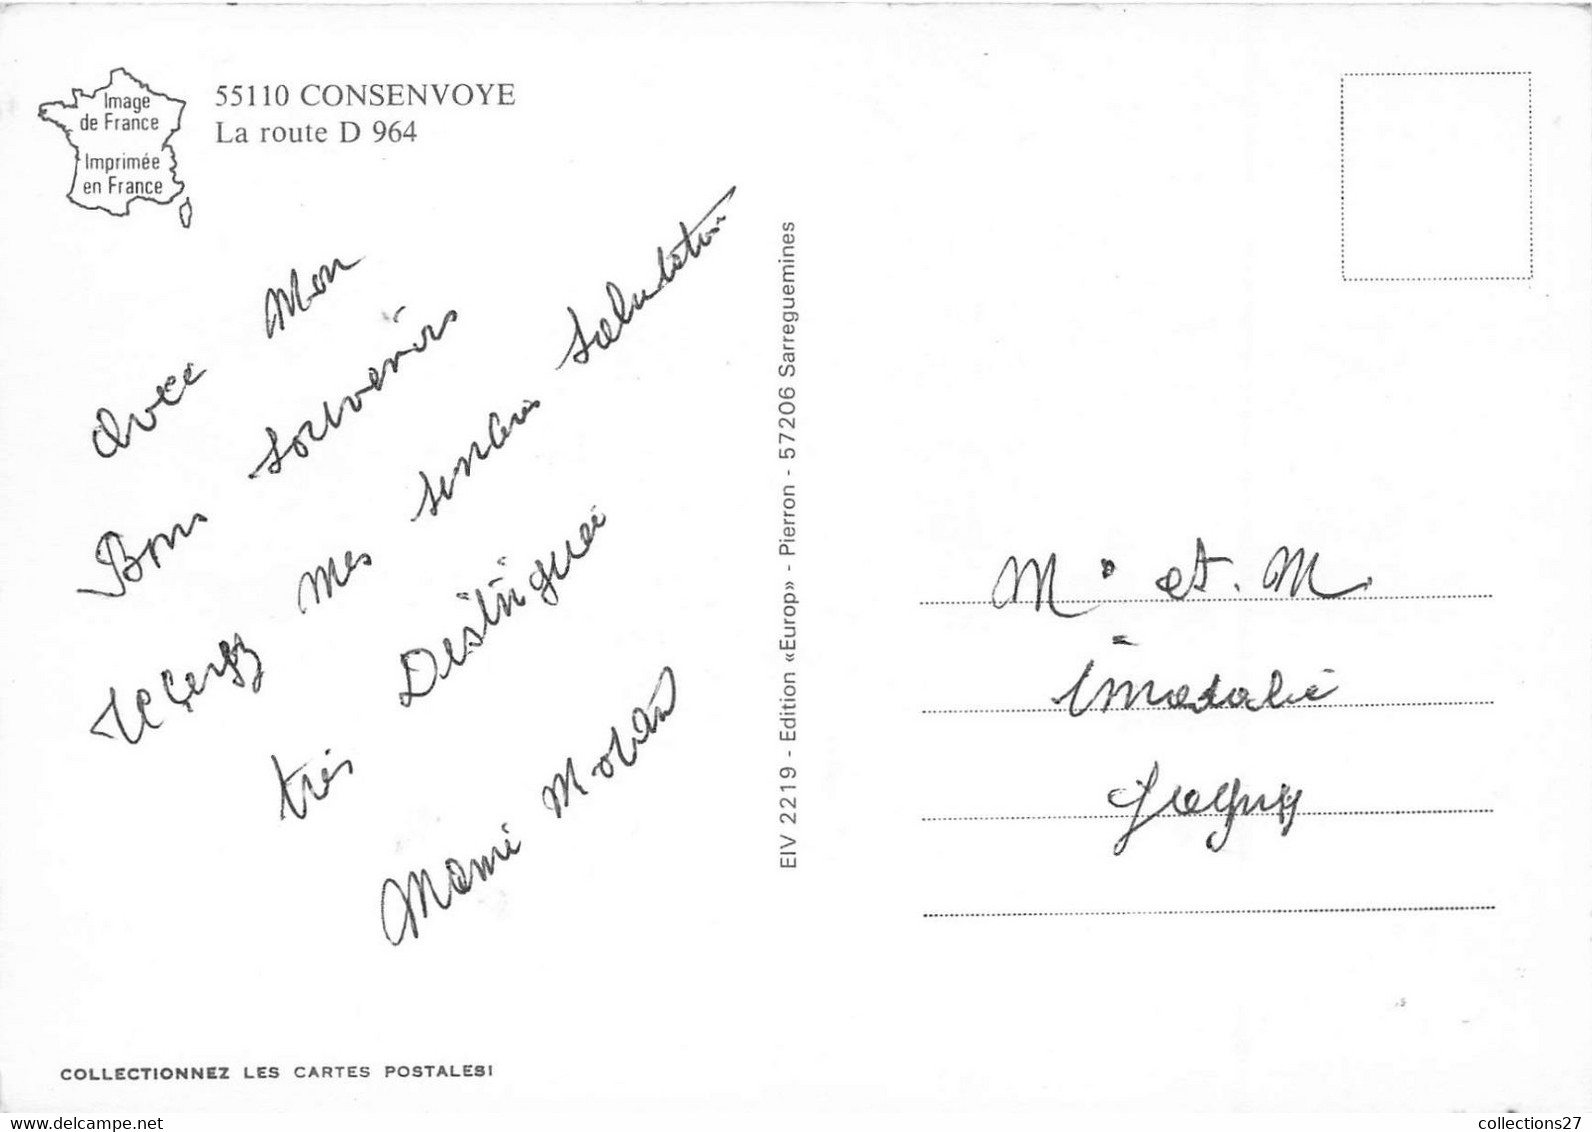 Image
de France
Imprimée
en France
55110 CONSENVOYE
La route D 964
avec Mon
Bons souvenirs
mes sincères salutation
très Distinguée
Mami
EIV 2219 - Edition «Europ» - Pierron - 57206 Sarreguemines
M et. M
COLLECTIONNEZ LES CARTES POSTALES!
collections27